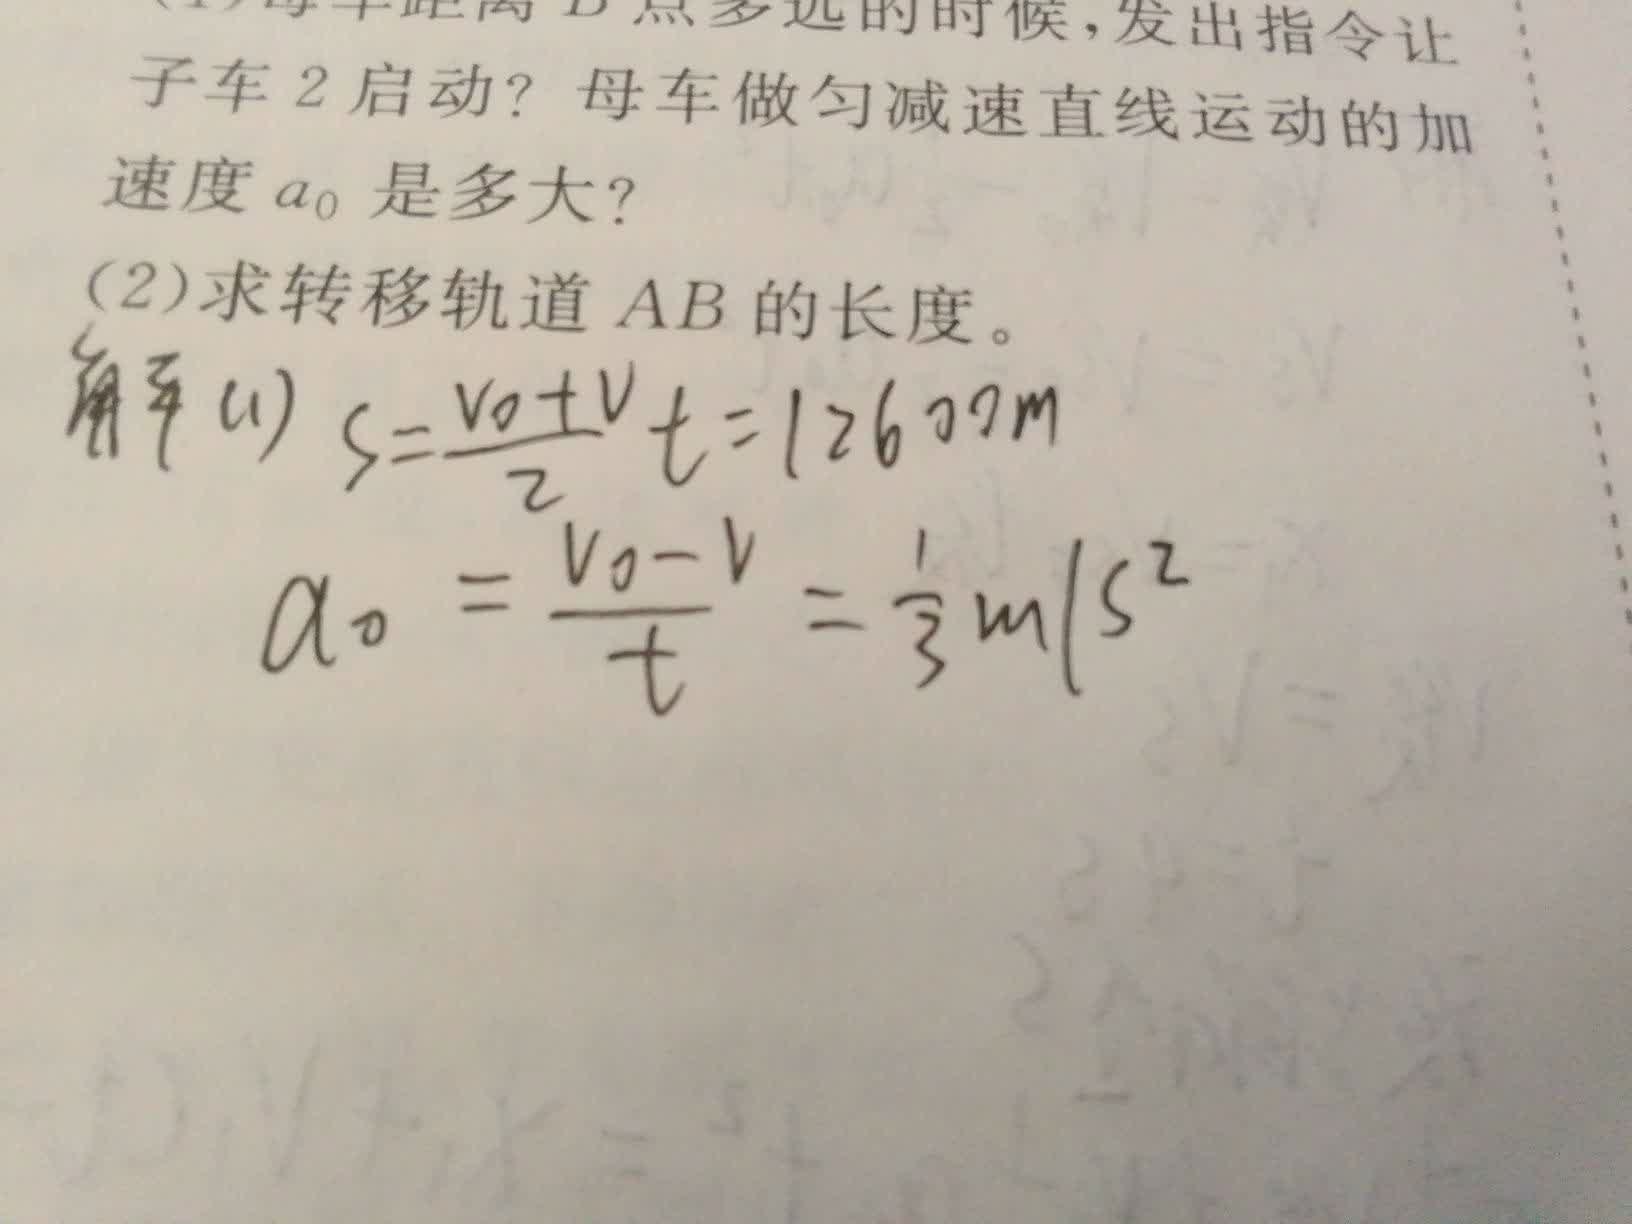 (1)母车距离 B 点多远的时候,发出指令让
子车 2 启动? 母车做匀减速直线运动的加
速度 a₀ 是多大?
(2)求转移轨道 AB 的长度。
解(1) S=\frac{v₀+v}{2}t=12600m
a₀=\frac{v₀-v}{t}=\frac{1}{3}m/s²